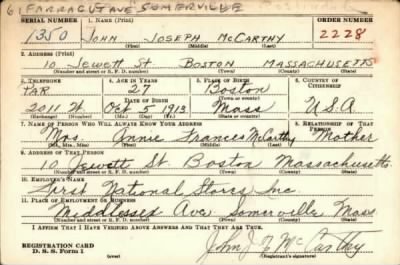 61 FARRAGUT AVE SOMERVILLE
SERIAL NUMBER 1. NAME (Print) ORDER NUMBER
1350 JOHN JOSEPH McCARTHY 2228
(First) (Middle) (Last)
2. ADDRESS (Print)
10 Jewett St BOSTON MASSACHUSETTS
(Number and street or R. F. D. number) (Town) (County) (State)
3. TELEPHONE 4. AGE IN YEARS 5. PLACE OF BIRTH 6. COUNTRY OF CITIZENSHIP
PAR 27 Boston
DATE OF BIRTH (Town or county)
2011 W Oct 5 1913 Mass U.S.A
(Exchange) (Number) (Mo.) (Day) (Yr.) (State or country)
7. NAME OF PERSON WHO WILL ALWAYS KNOW YOUR ADDRESS 8. RELATIONSHIP OF THAT PERSON
Mrs. Annie Frances McCarthy Mother
(Mr., Mrs., Miss) (First) (Middle) (Last)
9. ADDRESS OF THAT PERSON
10 Jewett St Boston Massachusetts
(Number and street or R. F. D. number) (Town) (County) (State)
10. EMPLOYER'S NAME
First National Stores Inc.
11. PLACE OF EMPLOYMENT OR BUSINESS
Middlessex Ave Somerville Mass
(Number and street or R. F. D. number) (Town) (County) (State)
I AFFIRM THAT I HAVE VERIFIED ABOVE ANSWERS AND THAT THEY ARE TRUE.
REGISTRATION CARD
D. S. S. Form 1 (over) John J McCarthy
(Registrant's signature)